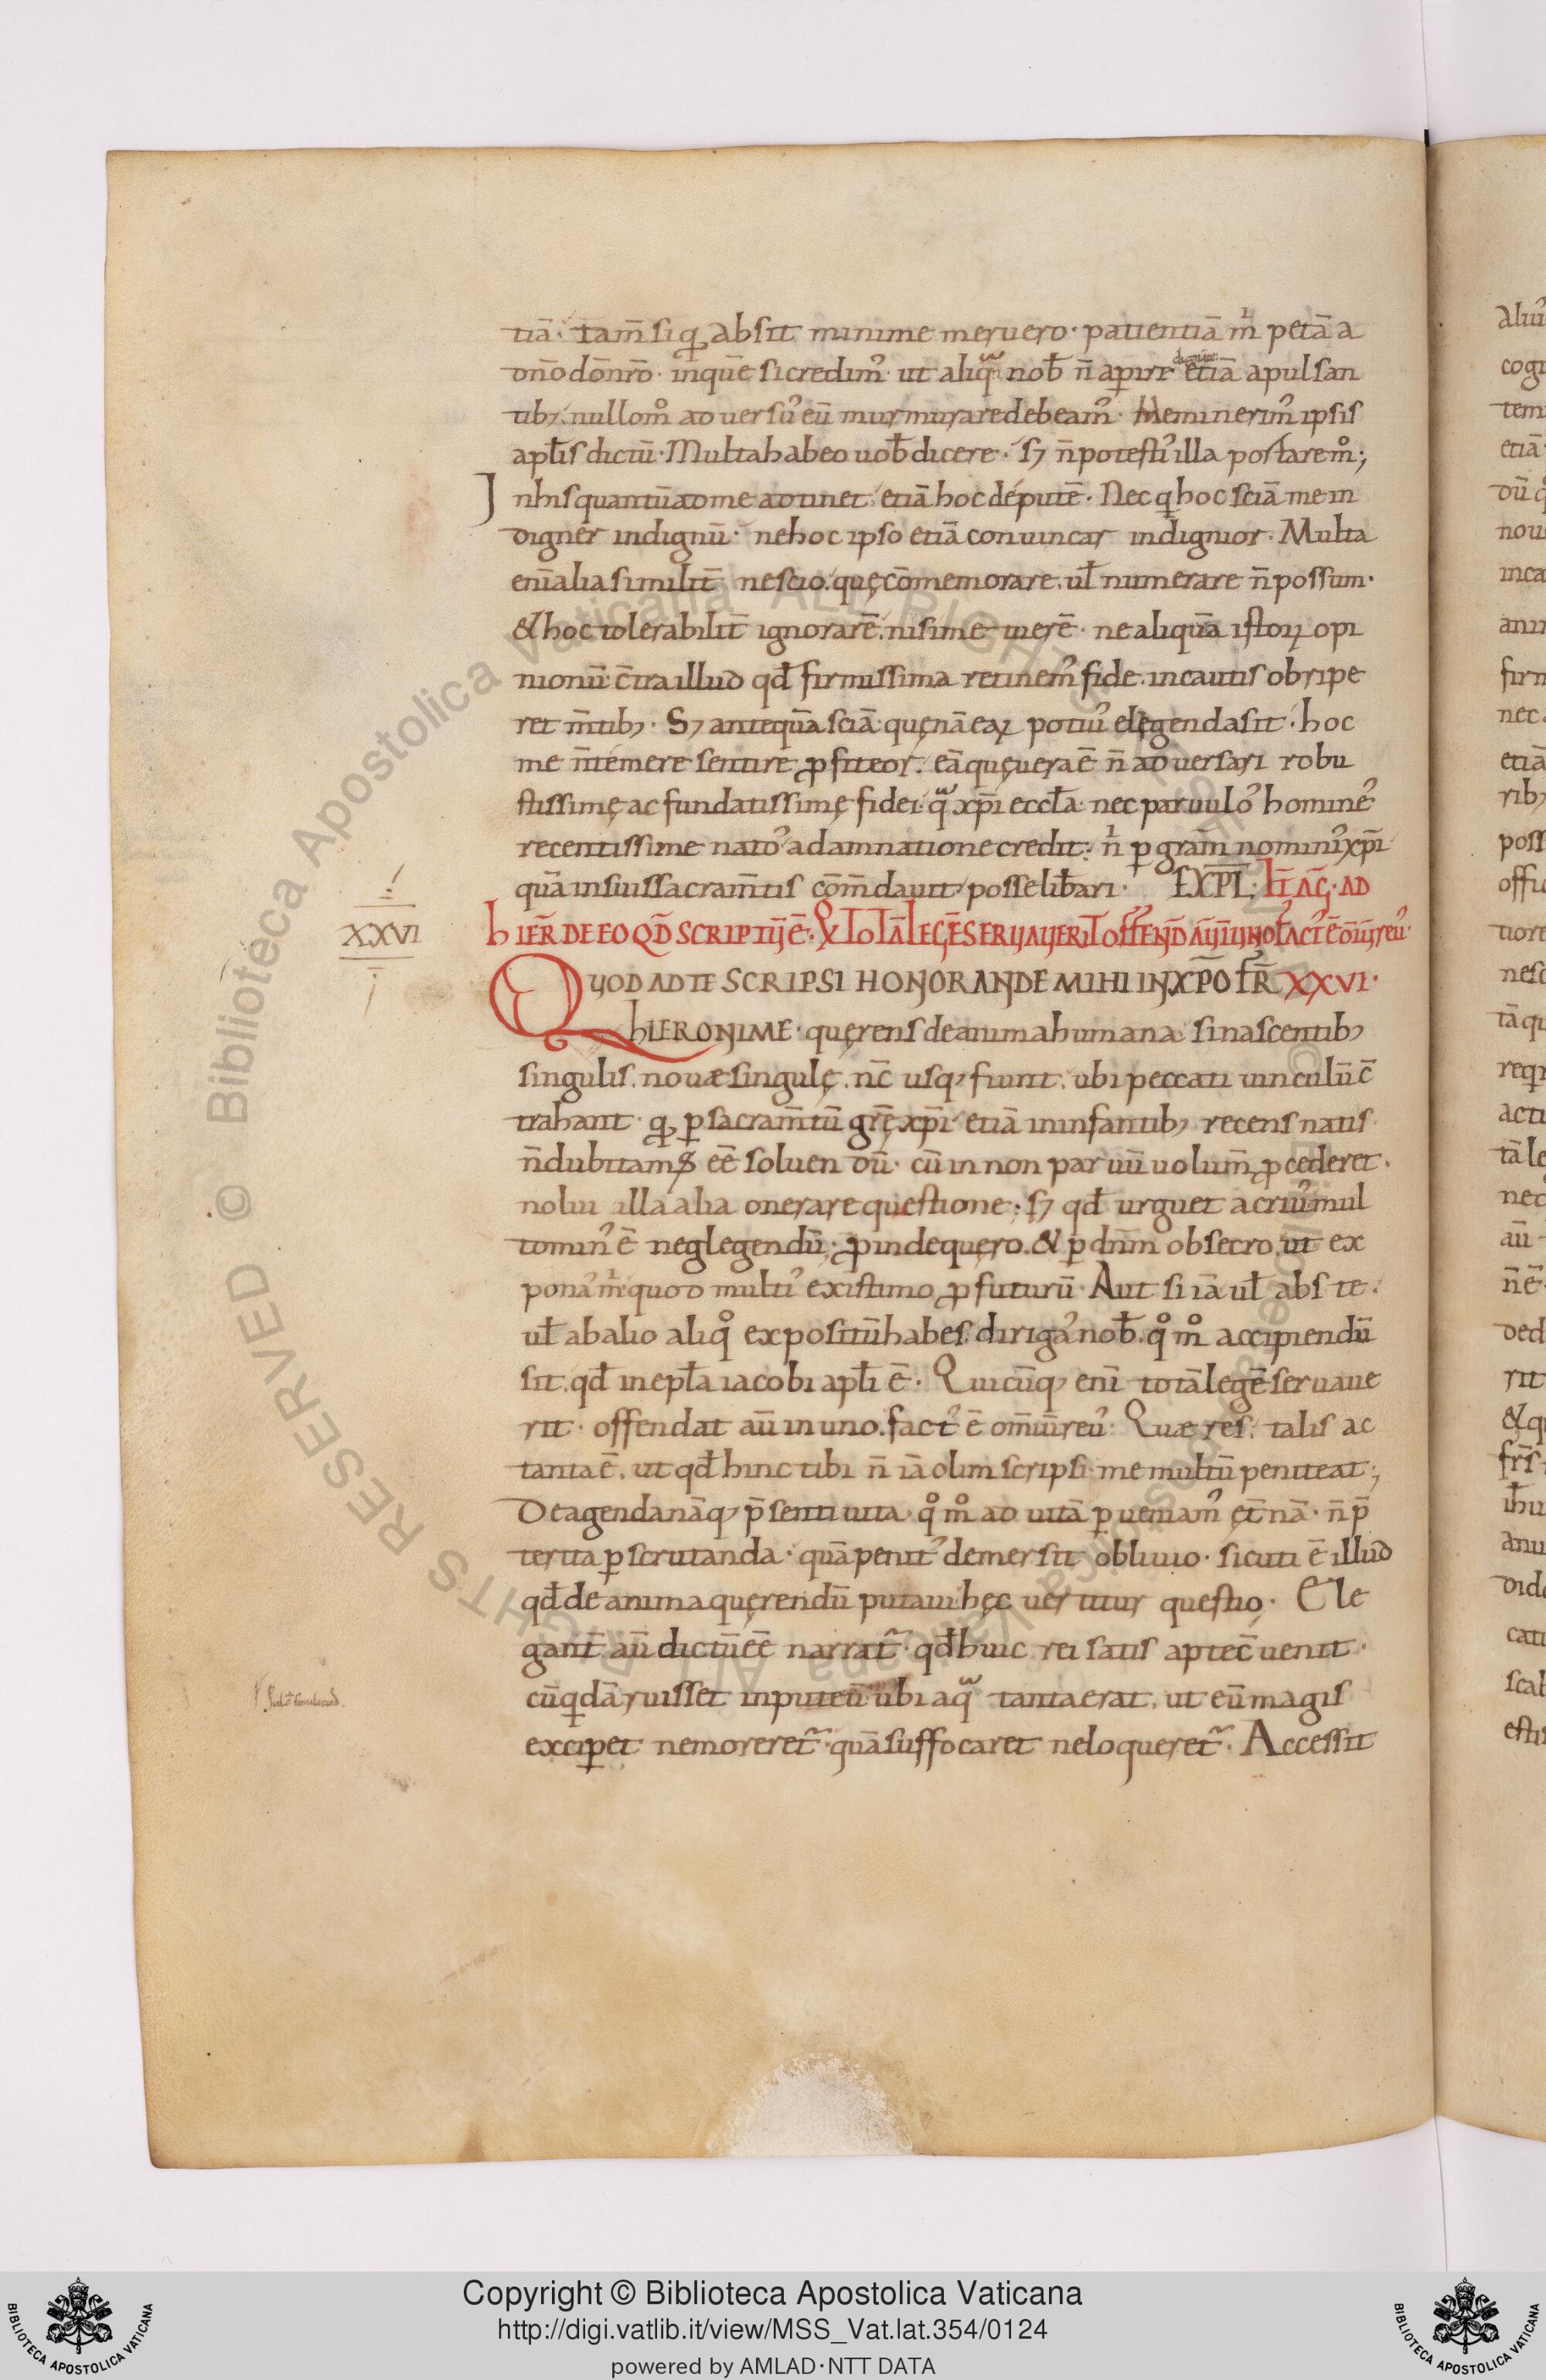 tiā· tam̄ si qđ absit minime meruero· patientiā m̊ petā a
dn̄o dōnr̄o· inquē si credim᾽ ut aliq̃ nob̄ n̄ aperire dignū etiā apulsan
tib; nullom̊ aduersu᾽ eū murmurare debeam᾽· Meminerim᾽ ipsis
apłis dictū· Multa habeo uob̄ dicere· s; n̄ potesti᾽ illa portare m̊;
Inhis quantū ad me adtinet etiā hoc deputē· Nec q hoc sciā me in
digner indignū· ne hoc ipso etiā conuincar indignior· Multa
enī alia similit̄ nescio· quę cōmemorare· uł numerare n̄ possum·
& hoc tolerabilit̄ ignorarē· nisi metuerē· ne aliquā istoꝝ opi
nionū· c̄tra illud qđ firmissima retinem᾽ fide· incautis obripe
ret m̄tib;· S; antequā sciā· quęnā eaꝝ potiu᾽ elegenda sit· hoc
me n̄ temere sentire ꝓfiteor· eā quę uera ē n̄ aduersari robu
stissimę ac fundatissimę fidei· q̃ xp̄i eccła nec paruulo᾽ homine᾽
recentissime nato᾽ a damnatione credit· n̊ ꝑ gram̄ nomini᾽ xp̄i
quā in suis sacram̄tis cōm̄dauit posse liƀari· EXPL̄· IT̄ AG̅· AD
HIER̄ DE EO QD̄ SCRIPTŪ Ē· Q̊ TOTĀ LEGĒ SERUAUERIT OFFEND̄ AŪ IN UNO FACT᾽ Ē OM̄IŪ REU᾽
XXVI
QUOD AD TE SCRIPSI HONORANDE MIHI IN XP̄O FR̄ XXVI·
HIERONIME· quęrens de anima humana si nascentib;
singulis· nouæ singulę· nc̄ usq; fiunt· ubi peccati uinculū c̄
trahant· qđ ꝑ sacram̄tū grę̄ xp̄i etiā in infantib; recens natis
n̄ dubitam᾽ eē soluendū· cū in non paruū uolum̄ ꝓcederet·
nolui illā alia onerare questione· s; qđ urguet acriu᾽ mul
to min᾽ ē neglegendū· ꝓinde quęro· & ꝑ dn̄m obsecro ut ex
pona᾽ m̊ quod multi᾽ existimo ꝓfuturū· Aut si iā uł abs te·
uł ab alio aliq̊ expositū habes· diriga᾽ nob̄· q̊ m̊ accipiendū
sit· qđ in epła iacobi apłi ē· Quicūq; enī totā legē seruaue
rit· offendat aū in uno· fact᾽ ē om̄iū reu᾽· Quæ res talis ac
tanta ē· ut qđ hinc tibi n̄ iā olim scripsi me multū peniteat;
De agenda nāq; p̄senti uita· q̊ m̊ ad uitā ꝑueniam᾽ ęt̄nā· n̄ p̄
terita ꝑscrutanda· quā penit᾽ demersit obliuio· sicuti ē illud
qđ de anima quęrendū putaui hęc uertitur questio· Ele
gant̄ aū dictū eē narrat᷑· qđ huic rei satis apte c̄uenit·
cū qdā ruisset in puteū ubi aq̃ tanta erat· ut eū magis
exciꝑet ne moreret᷑· quā suffocaret ne loqueret᷑· Accessit
Copyright © Biblioteca Apostolica Vaticana
http://digi.vatlib.it/view/MSS_Vat.lat.354/0124
powered by AMLAD·NTT DATA
BIBLIOTECA APOSTOLICA VATICANA
BIBLIOTECA APOSTOLICA VATICANA
Biblioteca Apostolica Vaticana ALL RIGHTS RESERVED ©